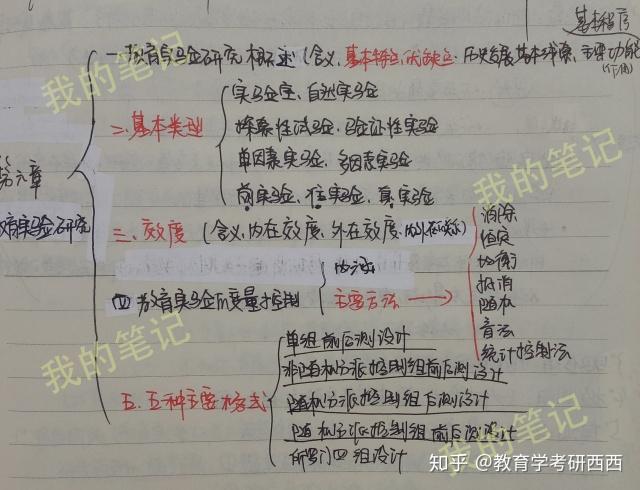 基本程序
一.教育实验研究概述(含义,基本特点,优缺点.历史发展基本线索,主要功能
(作用)
我的笔记
第六章
教育实验研究
二.基本类型
实验室,自然实验
探索性试验,验证性实验
单因素实验,多因素实验
前实验,准实验,真实验
我的笔记
三.效度 (含义,内在效度,外在效度,
四 教育实验 变量 控制
主要方法
消除
恒定
均衡
抵消
随机
盲法
统计控制法
我的笔记
五.五种主要格式
单组前后测设计
非随机分派控制组前后测设计
随机分派控制组后测设计
随机分派控制组前后测设计
所罗门四组设计
我的笔记
知乎 @教育学考研西西